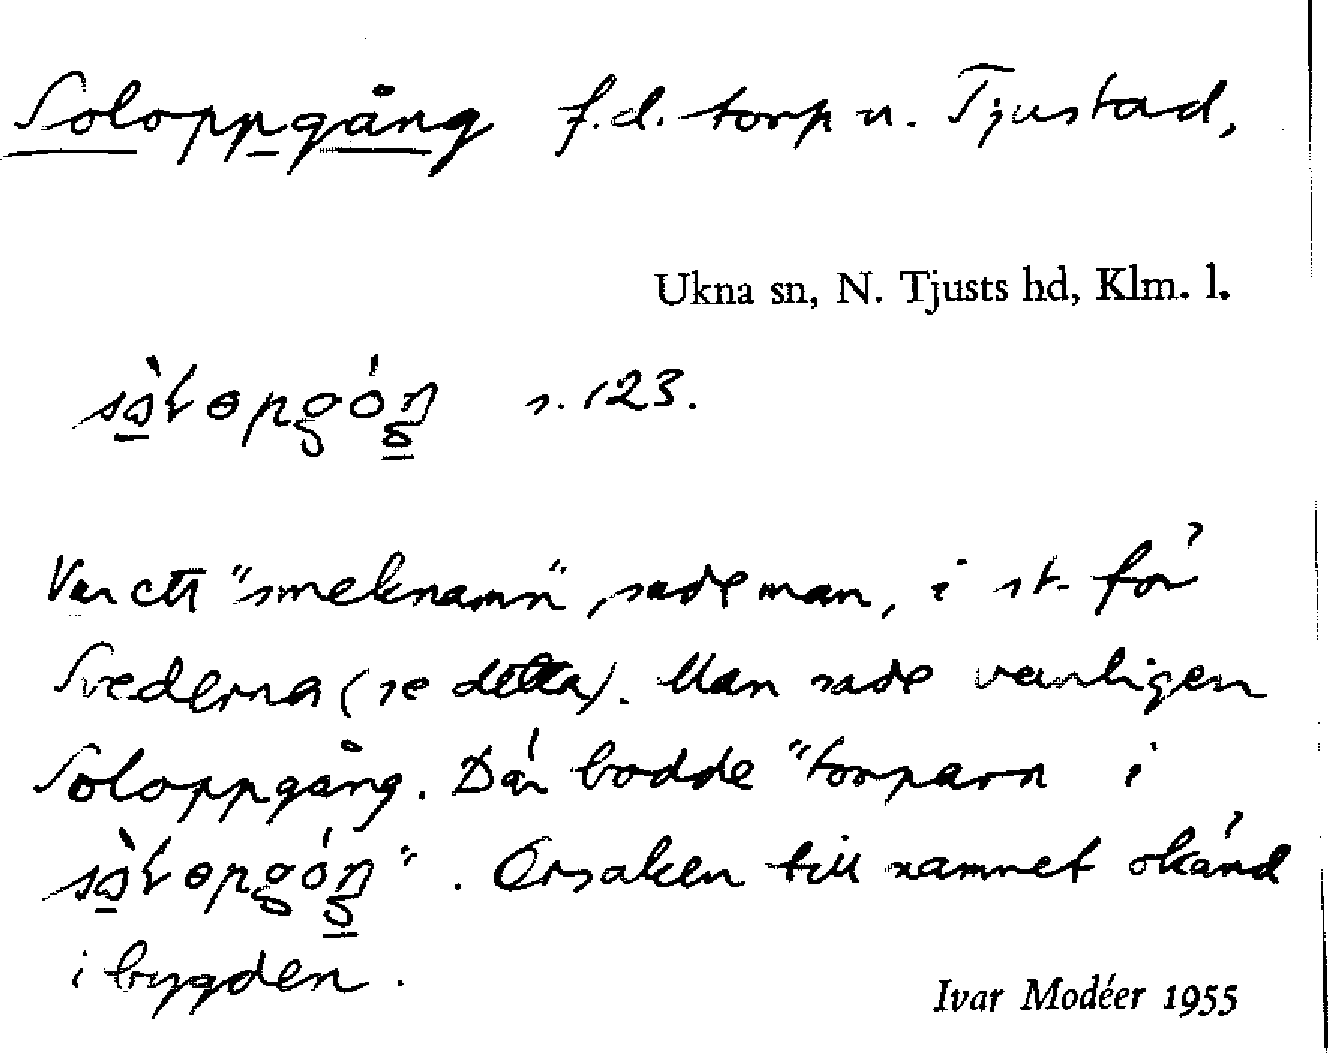 Soloppgång f.d. torp u. Tjustad,
Ukna sn, N. Tjusts hd, Klm. l.
s. 123.
Var ett "smeknamn", sade man, i st. för
Svederna (se detta). Man sade vanligen
Soloppgång. Där bodde "torparn i
". Orsaken till namnet okänd
i bygden.
Ivar Modéer 1955